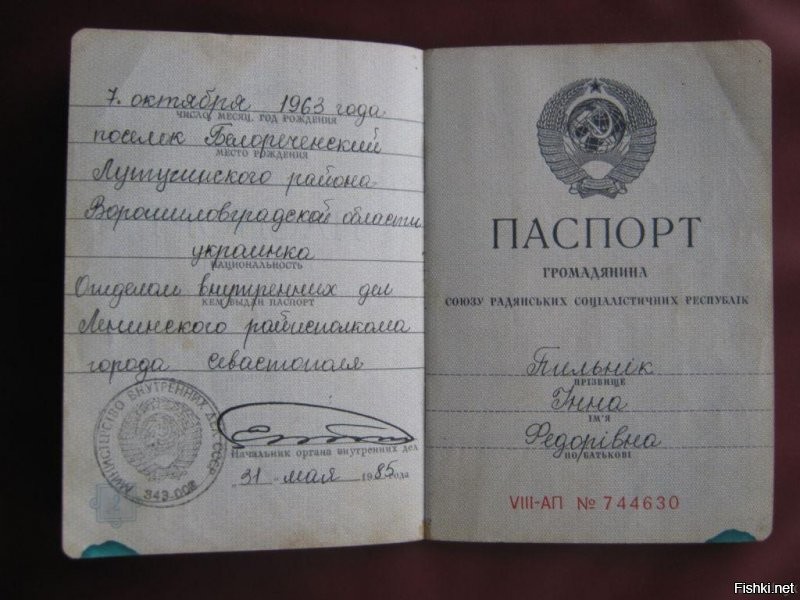 7. октября 1963 года
ЧИСЛО, МЕСЯЦ, ГОД РОЖДЕНИЯ
поселок Белореченский
МЕСТО РОЖДЕНИЯ
Лутугинского района
Ворошиловградской области
украинка
НАЦИОНАЛЬНОСТЬ
Отделом внутренних дел
КЕМ ВЫДАН ПАСПОРТ
Ленинского райисполкома
города Севастополя
МИНИСТЕРСТВО ВНУТРЕННИХ ДЕЛ СССР
343-008
Начальник органа внутренних дел
"31" мая 1985 года
ПАСПОРТ
ГРОМАДЯНИНА
СОЮЗУ РАДЯНСЬКИХ СОЦІАЛІСТИЧНИХ РЕСПУБЛІК
Пильнік
ПРІЗВИЩЕ
Інна
ІМ'Я
Федорівна
ПО БАТЬКОВІ
VIII-АП № 744630
Fishki.net